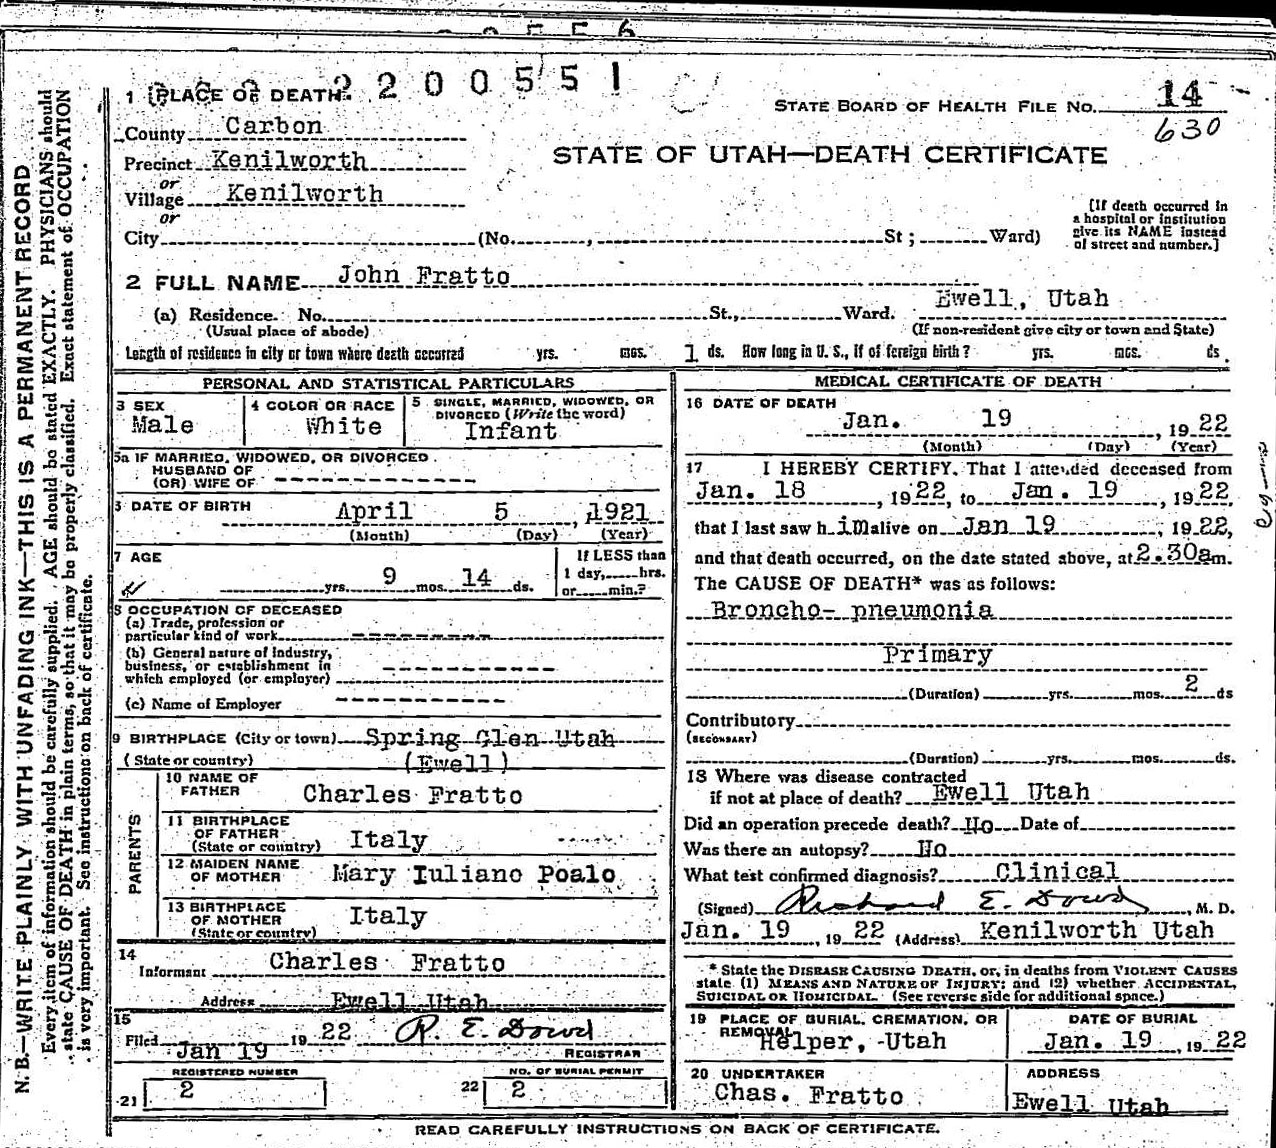 2200551
1 PLACE OF DEATH
STATE BOARD OF HEALTH FILE NO. 14
630
County Carbon
STATE OF UTAH—DEATH CERTIFICATE
Precinct Kenilworth
or
Village Kenilworth
or
[If death occurred in
a hospital or institution
give its NAME instead
of street and number.]
City (No. , St; Ward)
2 FULL NAME John Fratto
(a) Residence. No. St., Ward. Ewell, Utah
(Usual place of abode) (If non-resident give city or town and State)
Length of residence in city or town where death occurred yrs. mos. 1 ds. How long in U. S., if of foreign birth? yrs. mos. ds.
PERSONAL AND STATISTICAL PARTICULARS
3 SEX
Male
4 COLOR OR RACE
White
5 SINGLE, MARRIED, WIDOWED, OR
DIVORCED (Write the word)
Infant
5a IF MARRIED, WIDOWED, OR DIVORCED
HUSBAND OF
(OR) WIFE OF
6 DATE OF BIRTH April 5, 1921
(Month) (Day) (Year)
7 AGE
yrs. 9 mos. 14 ds.
If LESS than
1 day, hrs.
or min.?
8 OCCUPATION OF DECEASED
(a) Trade, profession or
particular kind of work
(b) General nature of industry,
business, or establishment in
which employed (or employer)
(c) Name of Employer
9 BIRTHPLACE (City or town) Spring Glen Utah
(State or country) (Ewell)
PARENTS
10 NAME OF
FATHER Charles Fratto
11 BIRTHPLACE
OF FATHER
(State or country) Italy
12 MAIDEN NAME
OF MOTHER Mary Iuliano Poalo
13 BIRTHPLACE
OF MOTHER
(State or country) Italy
14
Informant Charles Fratto
Address Ewell Utah
15
Filed Jan 19 1922 R. E. Dowd
REGISTRAR
REGISTERED NUMBER
21 2
NO. OF BURIAL PERMIT
22 2
MEDICAL CERTIFICATE OF DEATH
16 DATE OF DEATH
Jan. 19, 1922
(Month) (Day) (Year)
17 I HEREBY CERTIFY, That I attended deceased from
Jan. 18, 1922, to Jan. 19, 1922,
that I last saw h im alive on Jan 19, 1922,
and that death occurred, on the date stated above, at 2.30a m.
The CAUSE OF DEATH* was as follows:
Broncho- pneumonia
Primary
(Duration) yrs. mos. 2 ds
Contributory
(SECONDARY)
(Duration) yrs. mos. ds.
18 Where was disease contracted
if not at place of death? Ewell Utah
Did an operation precede death? No Date of
Was there an autopsy? No
What test confirmed diagnosis? Clinical
(Signed) Richard E. Dowd, M. D.
Jan. 19, 1922 (Address) Kenilworth Utah
* State the DISEASE CAUSING DEATH, or, in deaths from VIOLENT CAUSES
state (1) MEANS AND NATURE OF INJURY; and (2) whether ACCIDENTAL,
SUICIDAL OR HOMICIDAL. (See reverse side for additional space.)
19 PLACE OF BURIAL, CREMATION, OR
REMOVAL
Helper, Utah
DATE OF BURIAL
Jan. 19, 1922
20 UNDERTAKER
Chas. Fratto
ADDRESS
Ewell Utah
READ CAREFULLY INSTRUCTIONS ON BACK OF CERTIFICATE.
N. B.—WRITE PLAINLY WITH UNFADING INK—THIS IS A PERMANENT RECORD
Every item of information should be carefully supplied. AGE should be stated EXACTLY. PHYSICIANS should
state CAUSE OF DEATH in plain terms, so that it may be properly classified. Exact statement of OCCUPATION
is very important. See instructions on back of certificate.